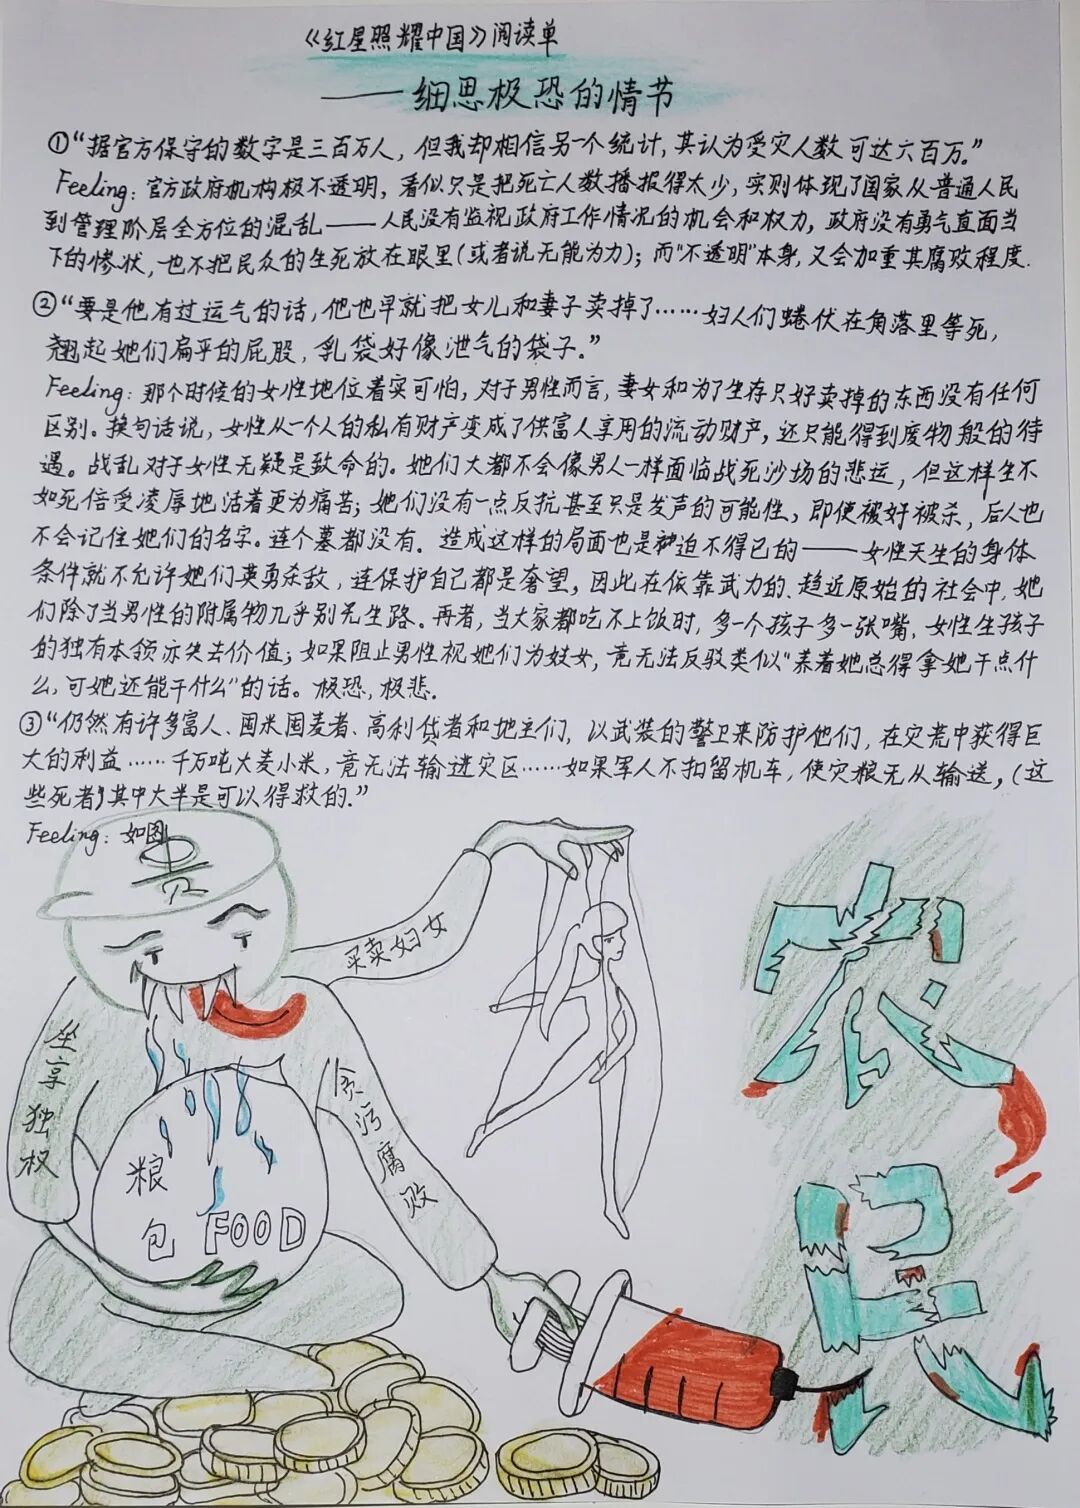 《红星照耀中国》阅读单
——细思极恐的情节
①“据官方保守的数字是三百万人，但我却相信另一个统计，其认为受灾人数可达六百万。”
Feeling：官方政府机构极不透明，看似只是把死亡人数播报得太少，实则体现了国家从普通人民
到管理阶层全方位的混乱——人民没有监视政府工作情况的机会和权力，政府没有勇气直面当
下的惨状，也不把民众的生死放在眼里(或者说无能为力)；而“不透明”本身，又会加重其腐败程度.
②“要是他有过运气的话，他也早就把女儿和妻子卖掉了……妇人们蜷伏在角落里等死，
翘起她们扁平的屁股，乳袋好像泄气的袋子。”
Feeling：那个时候的女性地位着实可怕，对于男性而言，妻女和为了生存只好卖掉的东西没有任何
区别。换句话说，女性从一个人的私有财产变成了供富人享用的流动财产，还只能得到废物般的待
遇。战乱对于女性无疑是致命的。她们大都不会像男人一样面临战死沙场的悲运，但这样生不
如死倍受凌辱地活着更为痛苦；她们没有一点反抗甚至只是发声的可能性，即使被奸被杀，后人也
不会记住她们的名字。连个墓都没有. 造成这样的局面也是被迫不得已的——女性天生的身体
条件就不允许她们英勇杀敌，连保护自己都是奢望。因此在依靠武力的、趋近原始的社会中，她
们除了当男性的附属物几乎别无生路。再者，当大家都吃不上饭时，多一个孩子多一张嘴，女性生孩子
的独有本领亦失去价值；如果阻止男性视她们为妓女，竟无法反驳类似“养着她总得拿她干点什
么，可她还能干什么”的话。极恐，极悲.
③“仍然有许多富人、囤米囤麦者、高利贷者和地主们，以武装的警卫来防护他们，在灾荒中获得巨
大的利益……千万吨大麦小米，竟无法输进灾区……如果军人不扣留机车，使灾粮无从输送，(这
些死者)其中大半是可以得救的.”
Feeling：如图
贵
买卖妇女
坐享独权
贪污腐败
粮包 FOOD
农民